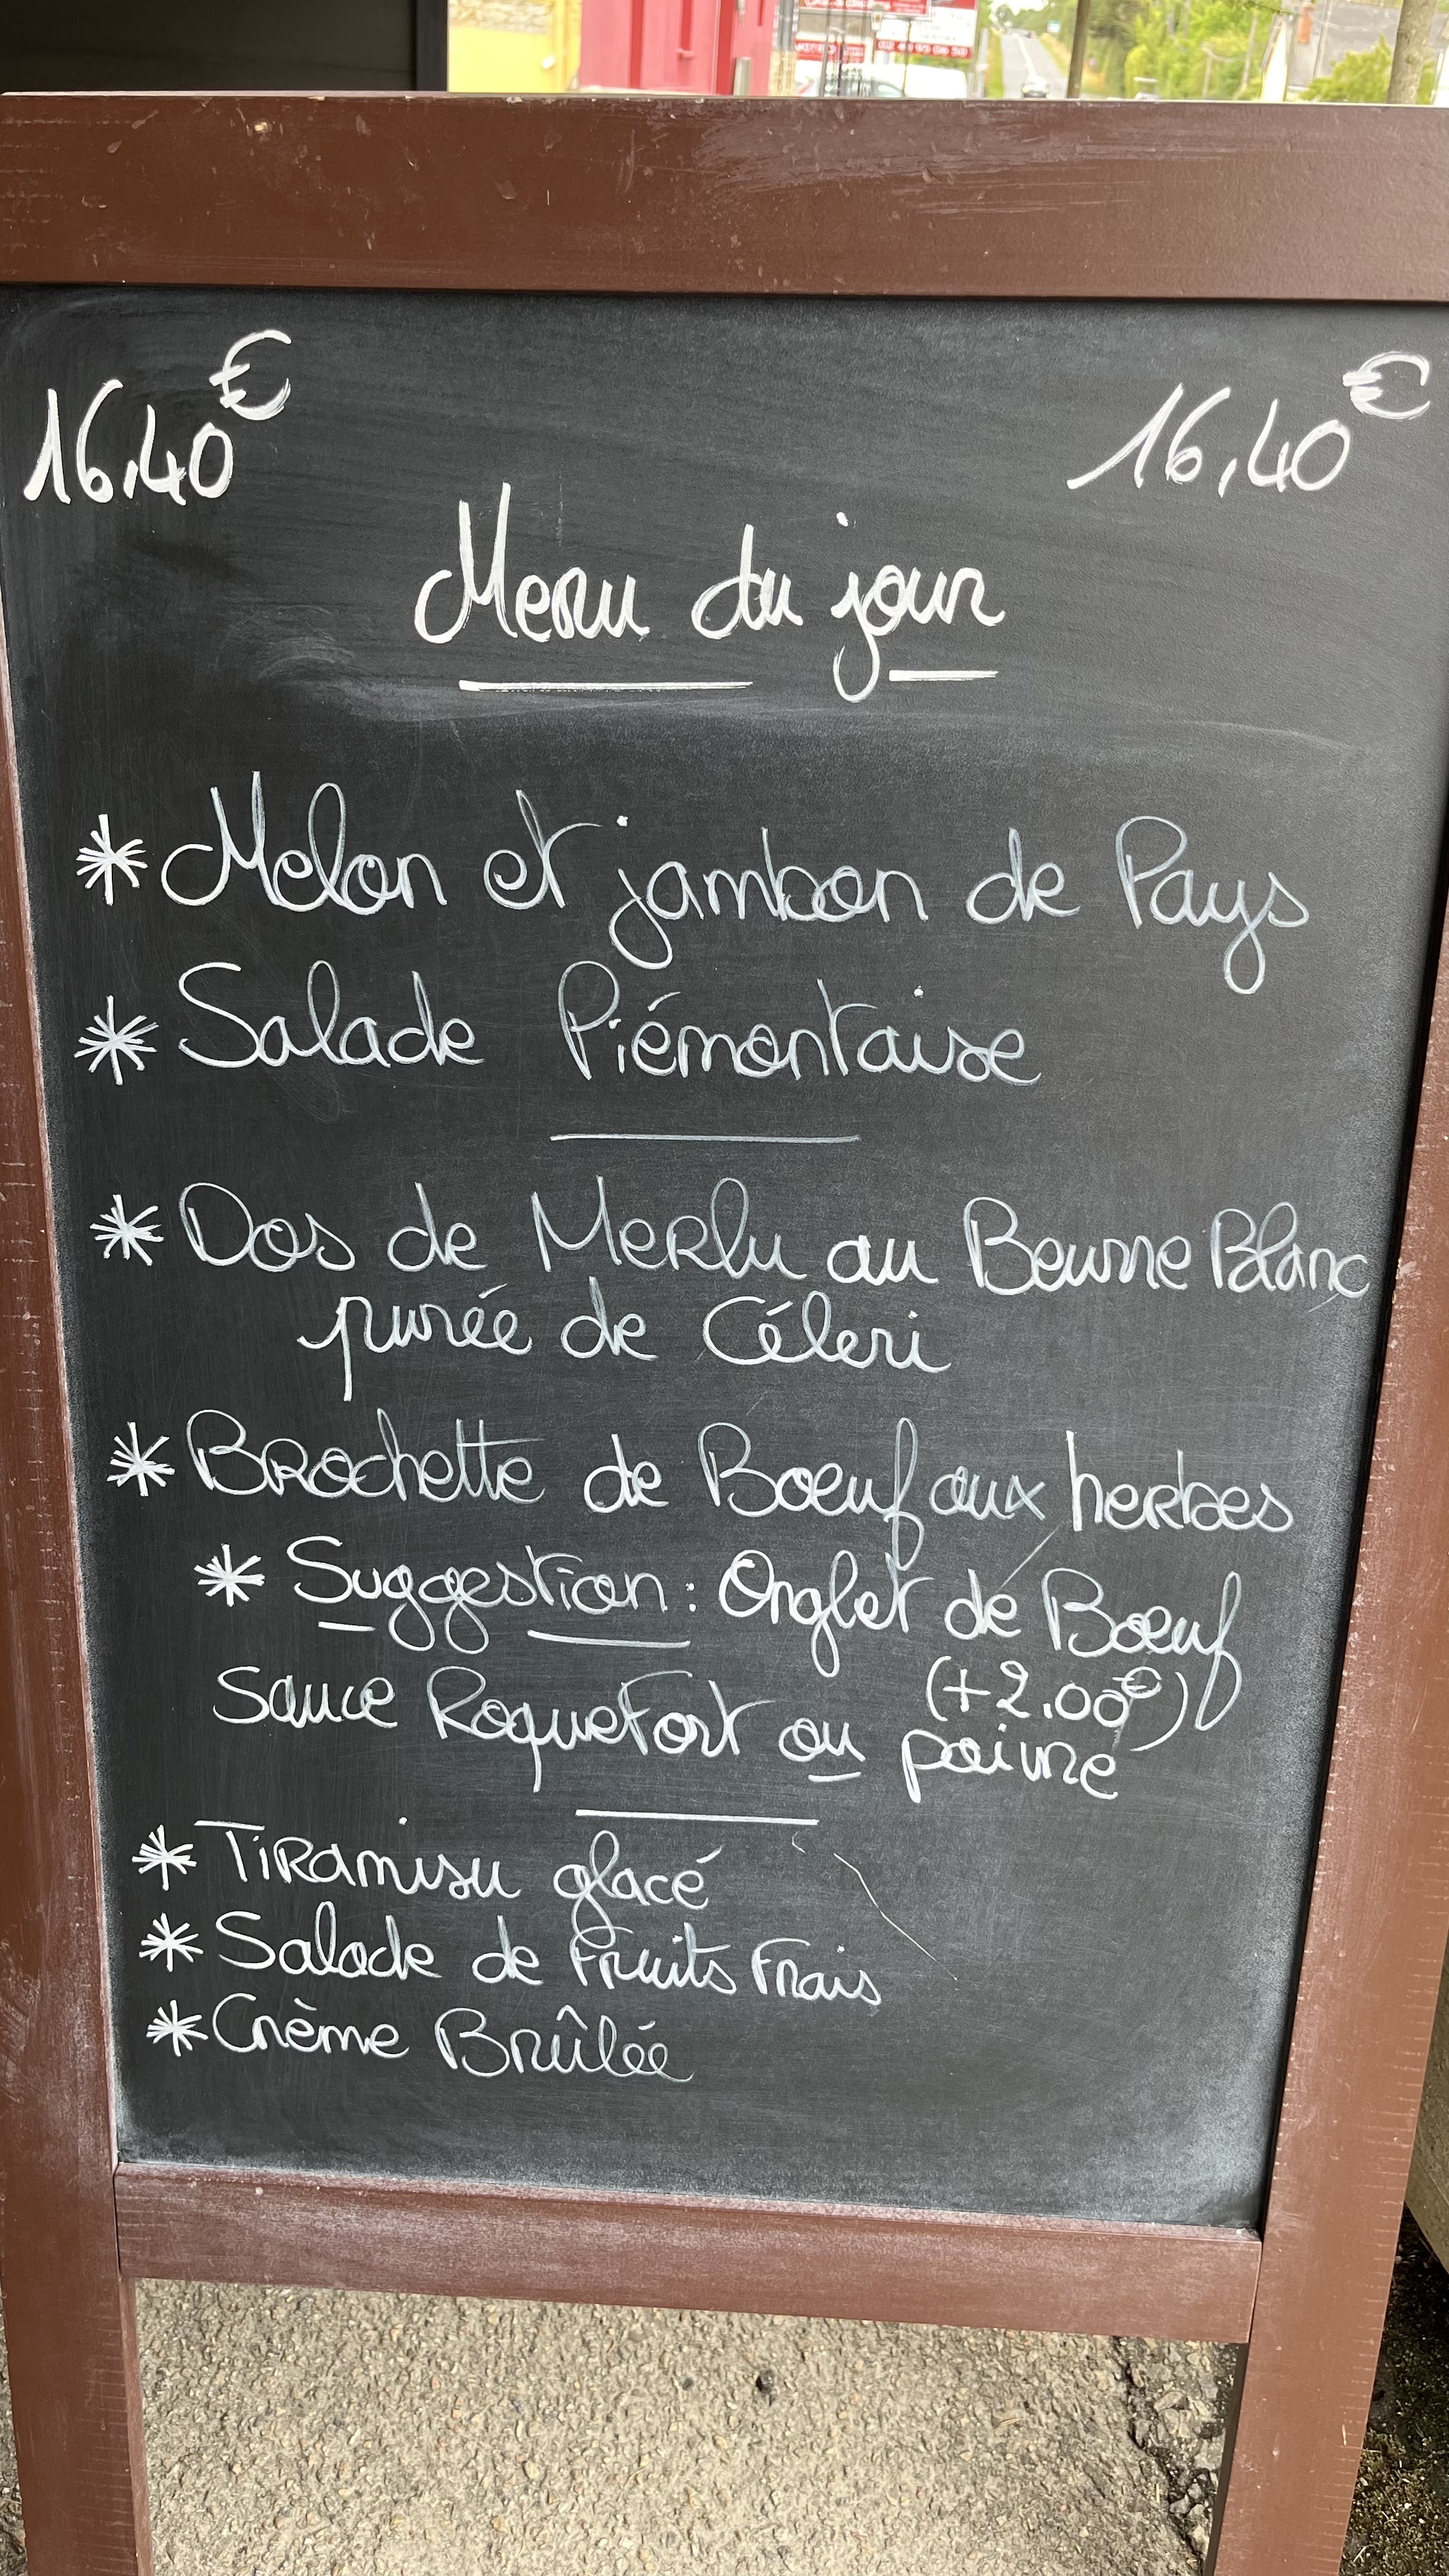 16,40€ 16,40€
Menu du jour
* Melon et jambon de Pays
* Salade Piémontaise
* Dos de Merlu au Beurre Blanc
purée de Céleri
* Brochette de Boeuf aux herbes
* Suggestion : Onglet de Boeuf
(+2.00€)
Sauce Roquefort ou poivre
* Tiramisu glacé
* Salade de Fruits Frais
* Crème Brûlée